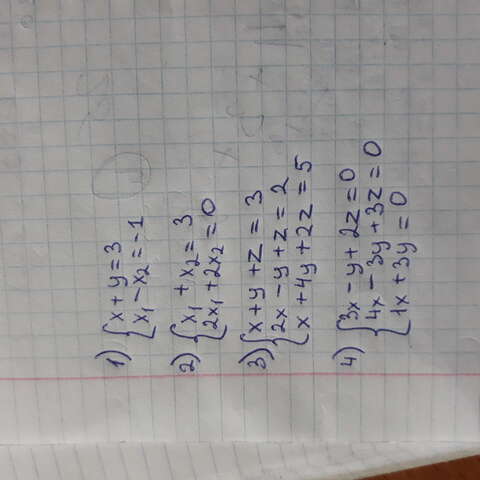 1) { x + y = 3
x₁ - x₂ = -1
2) { x₁ + x₂ = 3
2x₁ + 2x₂ = 0
3) { x + y + z = 3
2x - y + z = 2
x + 4y + 2z = 5
4) { 3x - y + 2z = 0
4x - 3y + 3z = 0
1x + 3y = 0